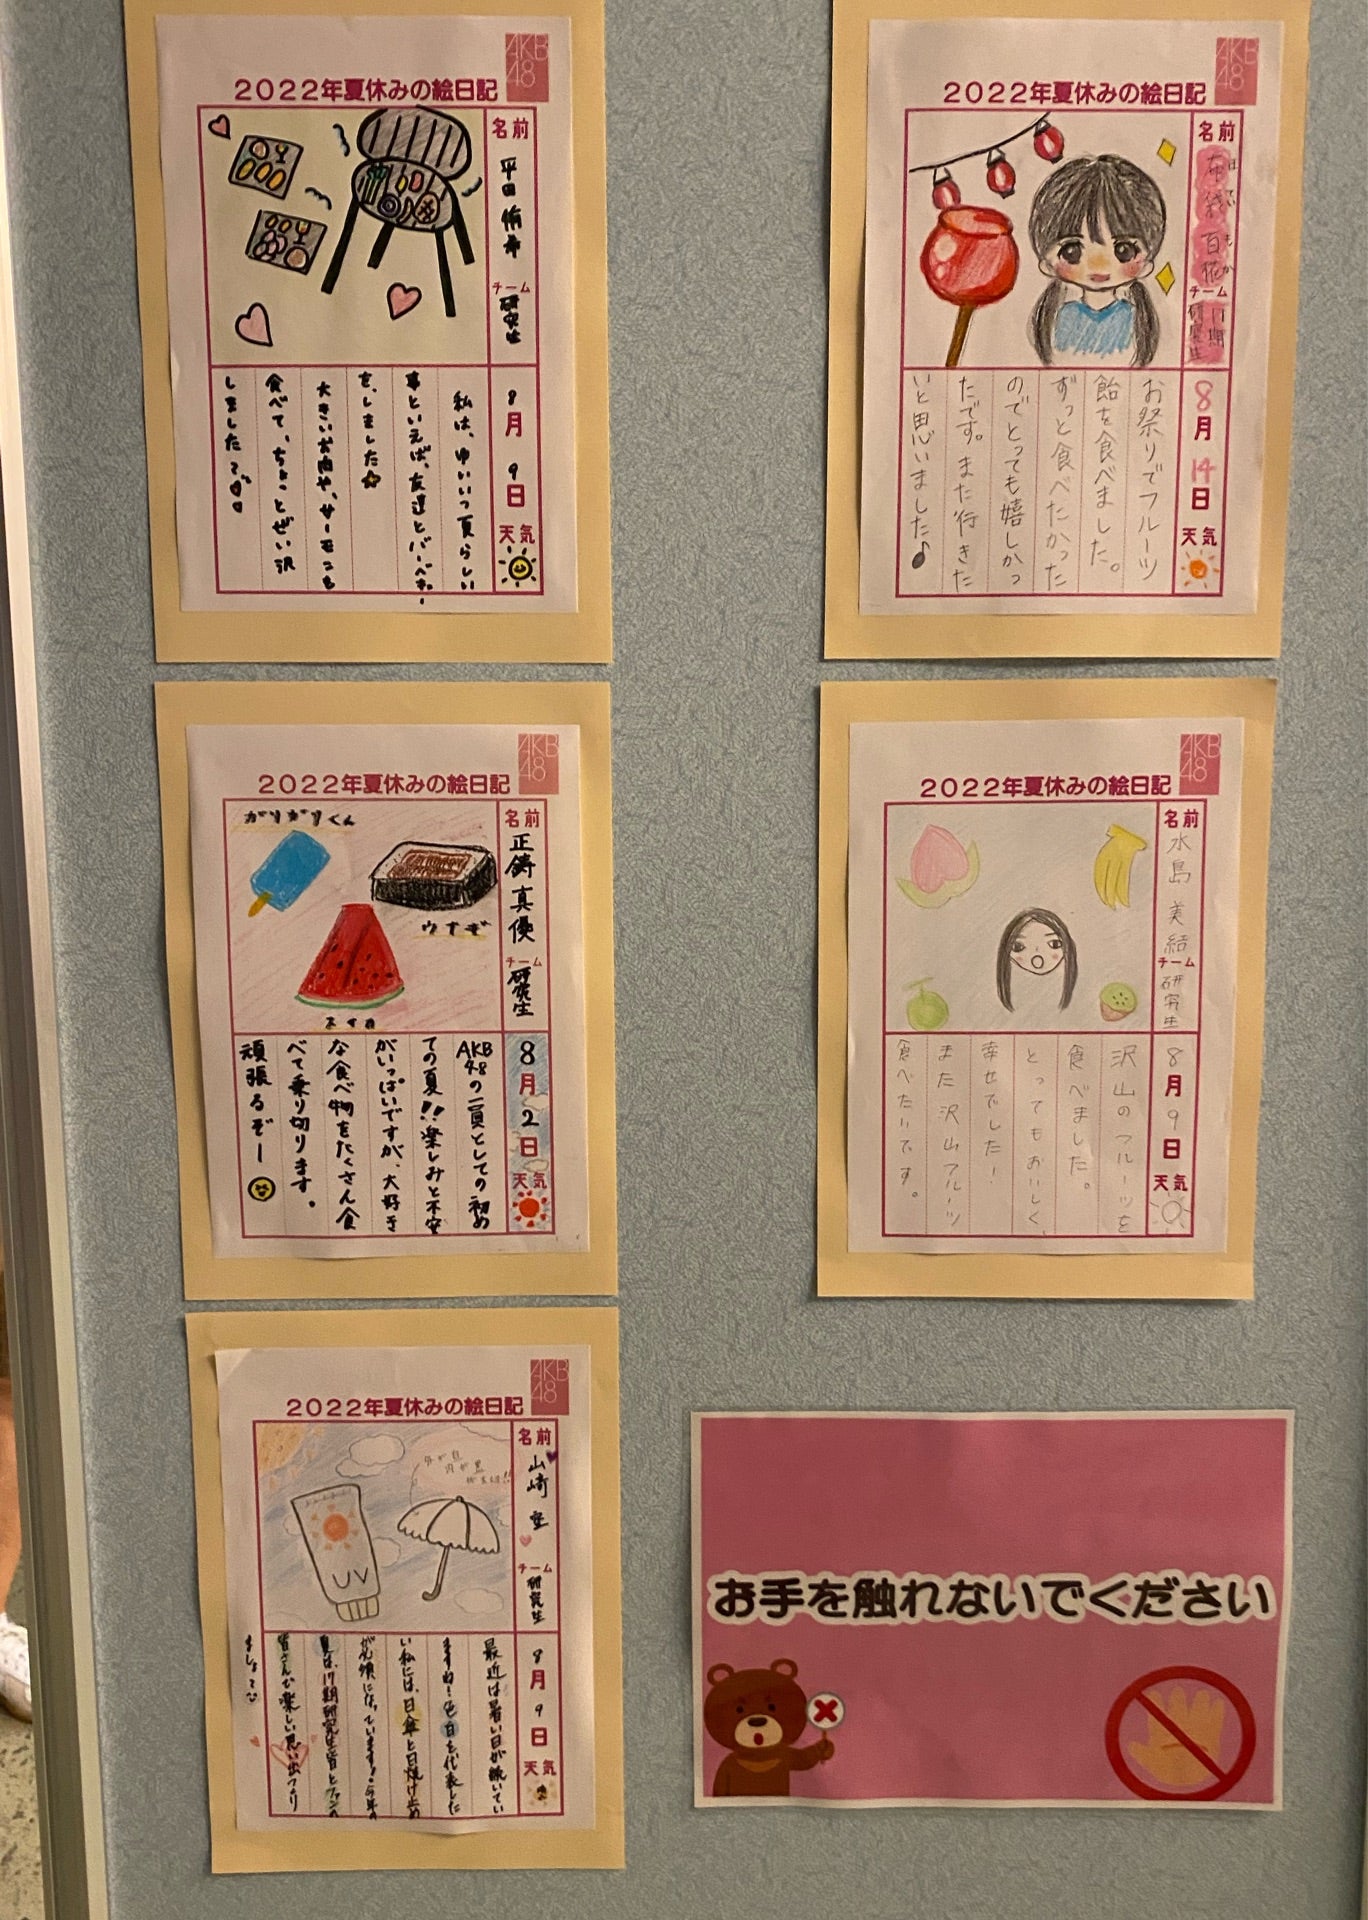 AKB
48
2022年夏休みの絵日記
名前
平田侑希
チーム
研究生
8月9日
天気
私は、ゆいいつ夏らしい
事といえば、友達とバーベキュー
を、しました
大きいお肉や、サーモンを
食べて、ちょことぜい沢
しましたです。
AKB
48
2022年夏休みの絵日記
名前
布袋百花
ほていもか
チーム
17期
研究生
8月14日
天気
お祭りでフルーツ
飴を食べました。
ずっと食べたかった
のでとっても嬉しかっ
たです。また行きた
いと思いました♪
AKB
48
2022年夏休みの絵日記
がりがりくん
ウナギ
スイカ
名前
正鋳真優
チーム
研究生
8月2日
天気
AKB48の一員としての初め
ての夏!!楽しみと不安
がいっぱいですが、大好き
な食べ物をたくさん食
べて乗り切ります。
頑張るぞー
AKB
48
2022年夏休みの絵日記
名前
水島美結
チーム
研究生
8月9日
天気
沢山のフルーツを
食べました。
とってもおいしく、
幸せでした!
また沢山フルーツ
食べたいです。
AKB
48
2022年夏休みの絵日記
UV
外が白
内が黒
名前
山﨑空
チーム
研究生
8月9日
天気
最近は暑い日が続いてい
ますね!色白を代表した
い私には、日傘と日焼け止め
が必須になっています!今年の
夏は、17期研究生皆とファンの
皆さんで楽しい思い出つくり
ましょ〜
お手を触れないでください